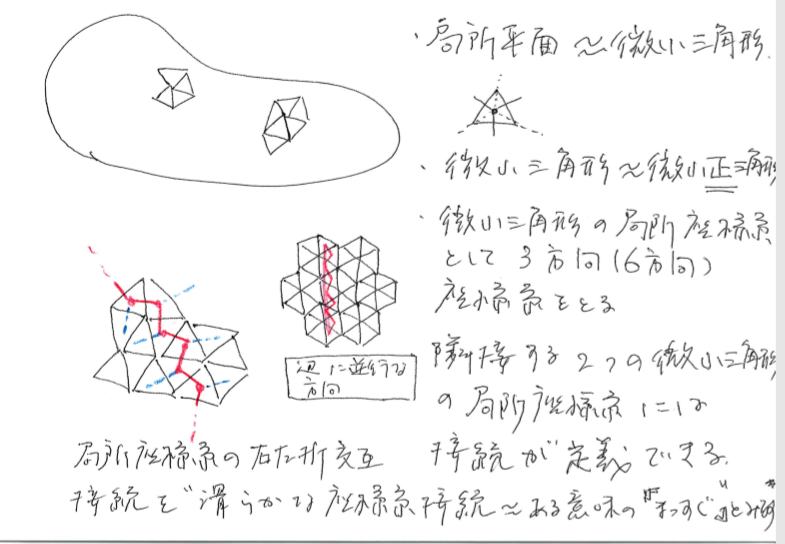 ・局所平面 ≈ 微小三角形.
・微小三角形 ≈ 微小正三角形
・微小三角形の局所座標系
として3方向(6方向)
座標系をとる
隣接する2つの微小三角形
の局所座標系には
接続が定義できる.
辺に並行な
方向
局所座標系の右左折交互
接続を"滑らかな座標系接続 ≈ ある意味の"まっすぐ"